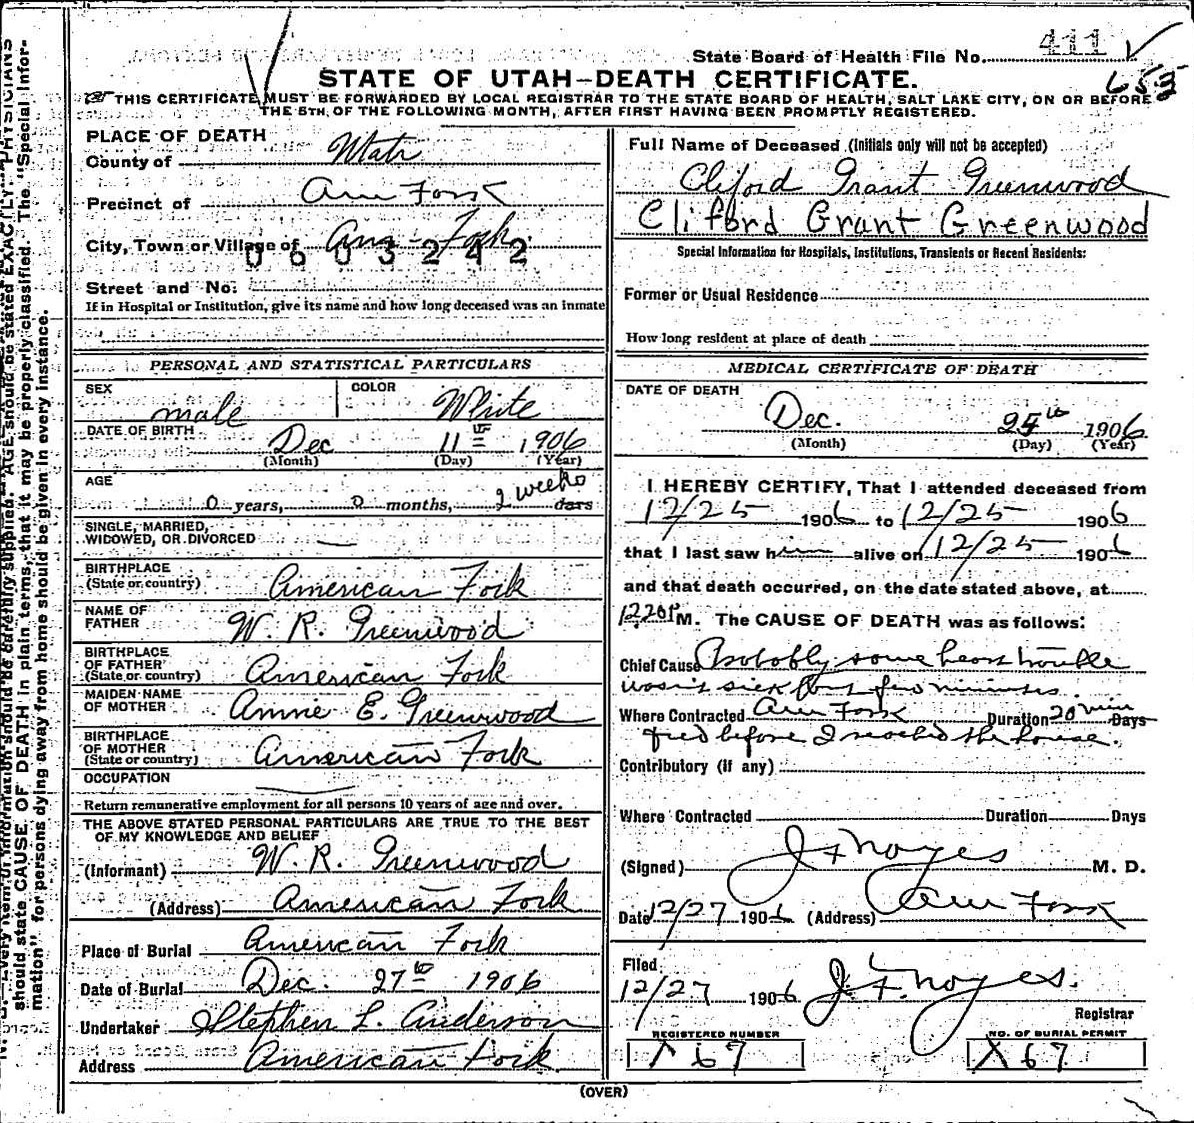 State Board of Health File No. 411
653
STATE OF UTAH—DEATH CERTIFICATE.
THIS CERTIFICATE MUST BE FORWARDED BY LOCAL REGISTRAR TO THE STATE BOARD OF HEALTH, SALT LAKE CITY, ON OR BEFORE
THE 5TH OF THE FOLLOWING MONTH, AFTER FIRST HAVING BEEN PROMPTLY REGISTERED.
PLACE OF DEATH
County of Utah
Precinct of Am Fork
City, Town or Village of Am Fork
0603242
Street and No.
If in Hospital or Institution, give its name and how long deceased was an inmate
PERSONAL AND STATISTICAL PARTICULARS
SEX male COLOR White
DATE OF BIRTH Dec 11th 1906
(Month) (Day) (Year)
AGE
0 years, 0 months, 2 weeks days
SINGLE, MARRIED,
WIDOWED, OR DIVORCED —
BIRTHPLACE
(State or country) American Fork
NAME OF
FATHER W. R. Greenwood
BIRTHPLACE
OF FATHER
(State or country) American Fork
MAIDEN NAME
OF MOTHER Annie E. Greenwood
BIRTHPLACE
OF MOTHER
(State or country) American Fork
OCCUPATION
Return remunerative employment for all persons 10 years of age and over.
THE ABOVE STATED PERSONAL PARTICULARS ARE TRUE TO THE BEST
OF MY KNOWLEDGE AND BELIEF
(Informant) W. R. Greenwood
(Address) American Fork
Place of Burial American Fork
Date of Burial Dec. 27th 1906
Undertaker Stephen L. Anderson
Address American Fork
Full Name of Deceased (Initials only will not be accepted)
Cliford Grant Greenwood
Cliford Grant Greenwood
Special Information for Hospitals, Institutions, Transients or Recent Residents:
Former or Usual Residence
How long resident at place of death
MEDICAL CERTIFICATE OF DEATH
DATE OF DEATH
Dec. 25th 1906
(Month) (Day) (Year)
I HEREBY CERTIFY, That I attended deceased from
12/25 1906 to 12/25 1906
that I last saw him alive on 12/25 1906
and that death occurred, on the date stated above, at
12.20 P M. The CAUSE OF DEATH was as follows:
Chief Cause Probably some heart trouble
wasn't sick but few minutes.
Where Contracted Am Fork Duration 20 min Days
Died before I reached the house.
Contributory (if any)
Where Contracted Duration Days
(Signed) J F Noyes M. D.
Date 12/27 1906 (Address) Am Fork
Filed
12/27 1906 J. F. Noyes.
Registrar
REGISTERED NUMBER
67
NO. OF BURIAL PERMIT
67
(OVER)
should state CAUSE OF DEATH in plain terms, that it may be properly classified. The "Special Infor-
mation" for persons dying away from home should be given in every instance.